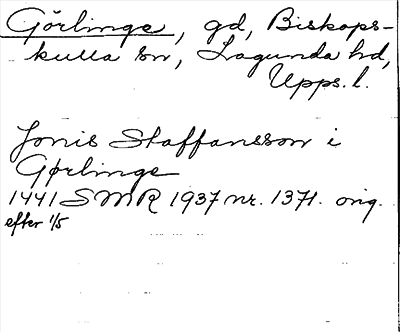 Görlinge, gd, Biskops-
kulla sn, Lagunda hd,
Upps. l.
Jonis Staffansson i
Gørlinge
1441 SMR 1937 nr. 1371. orig.
efter 1/5